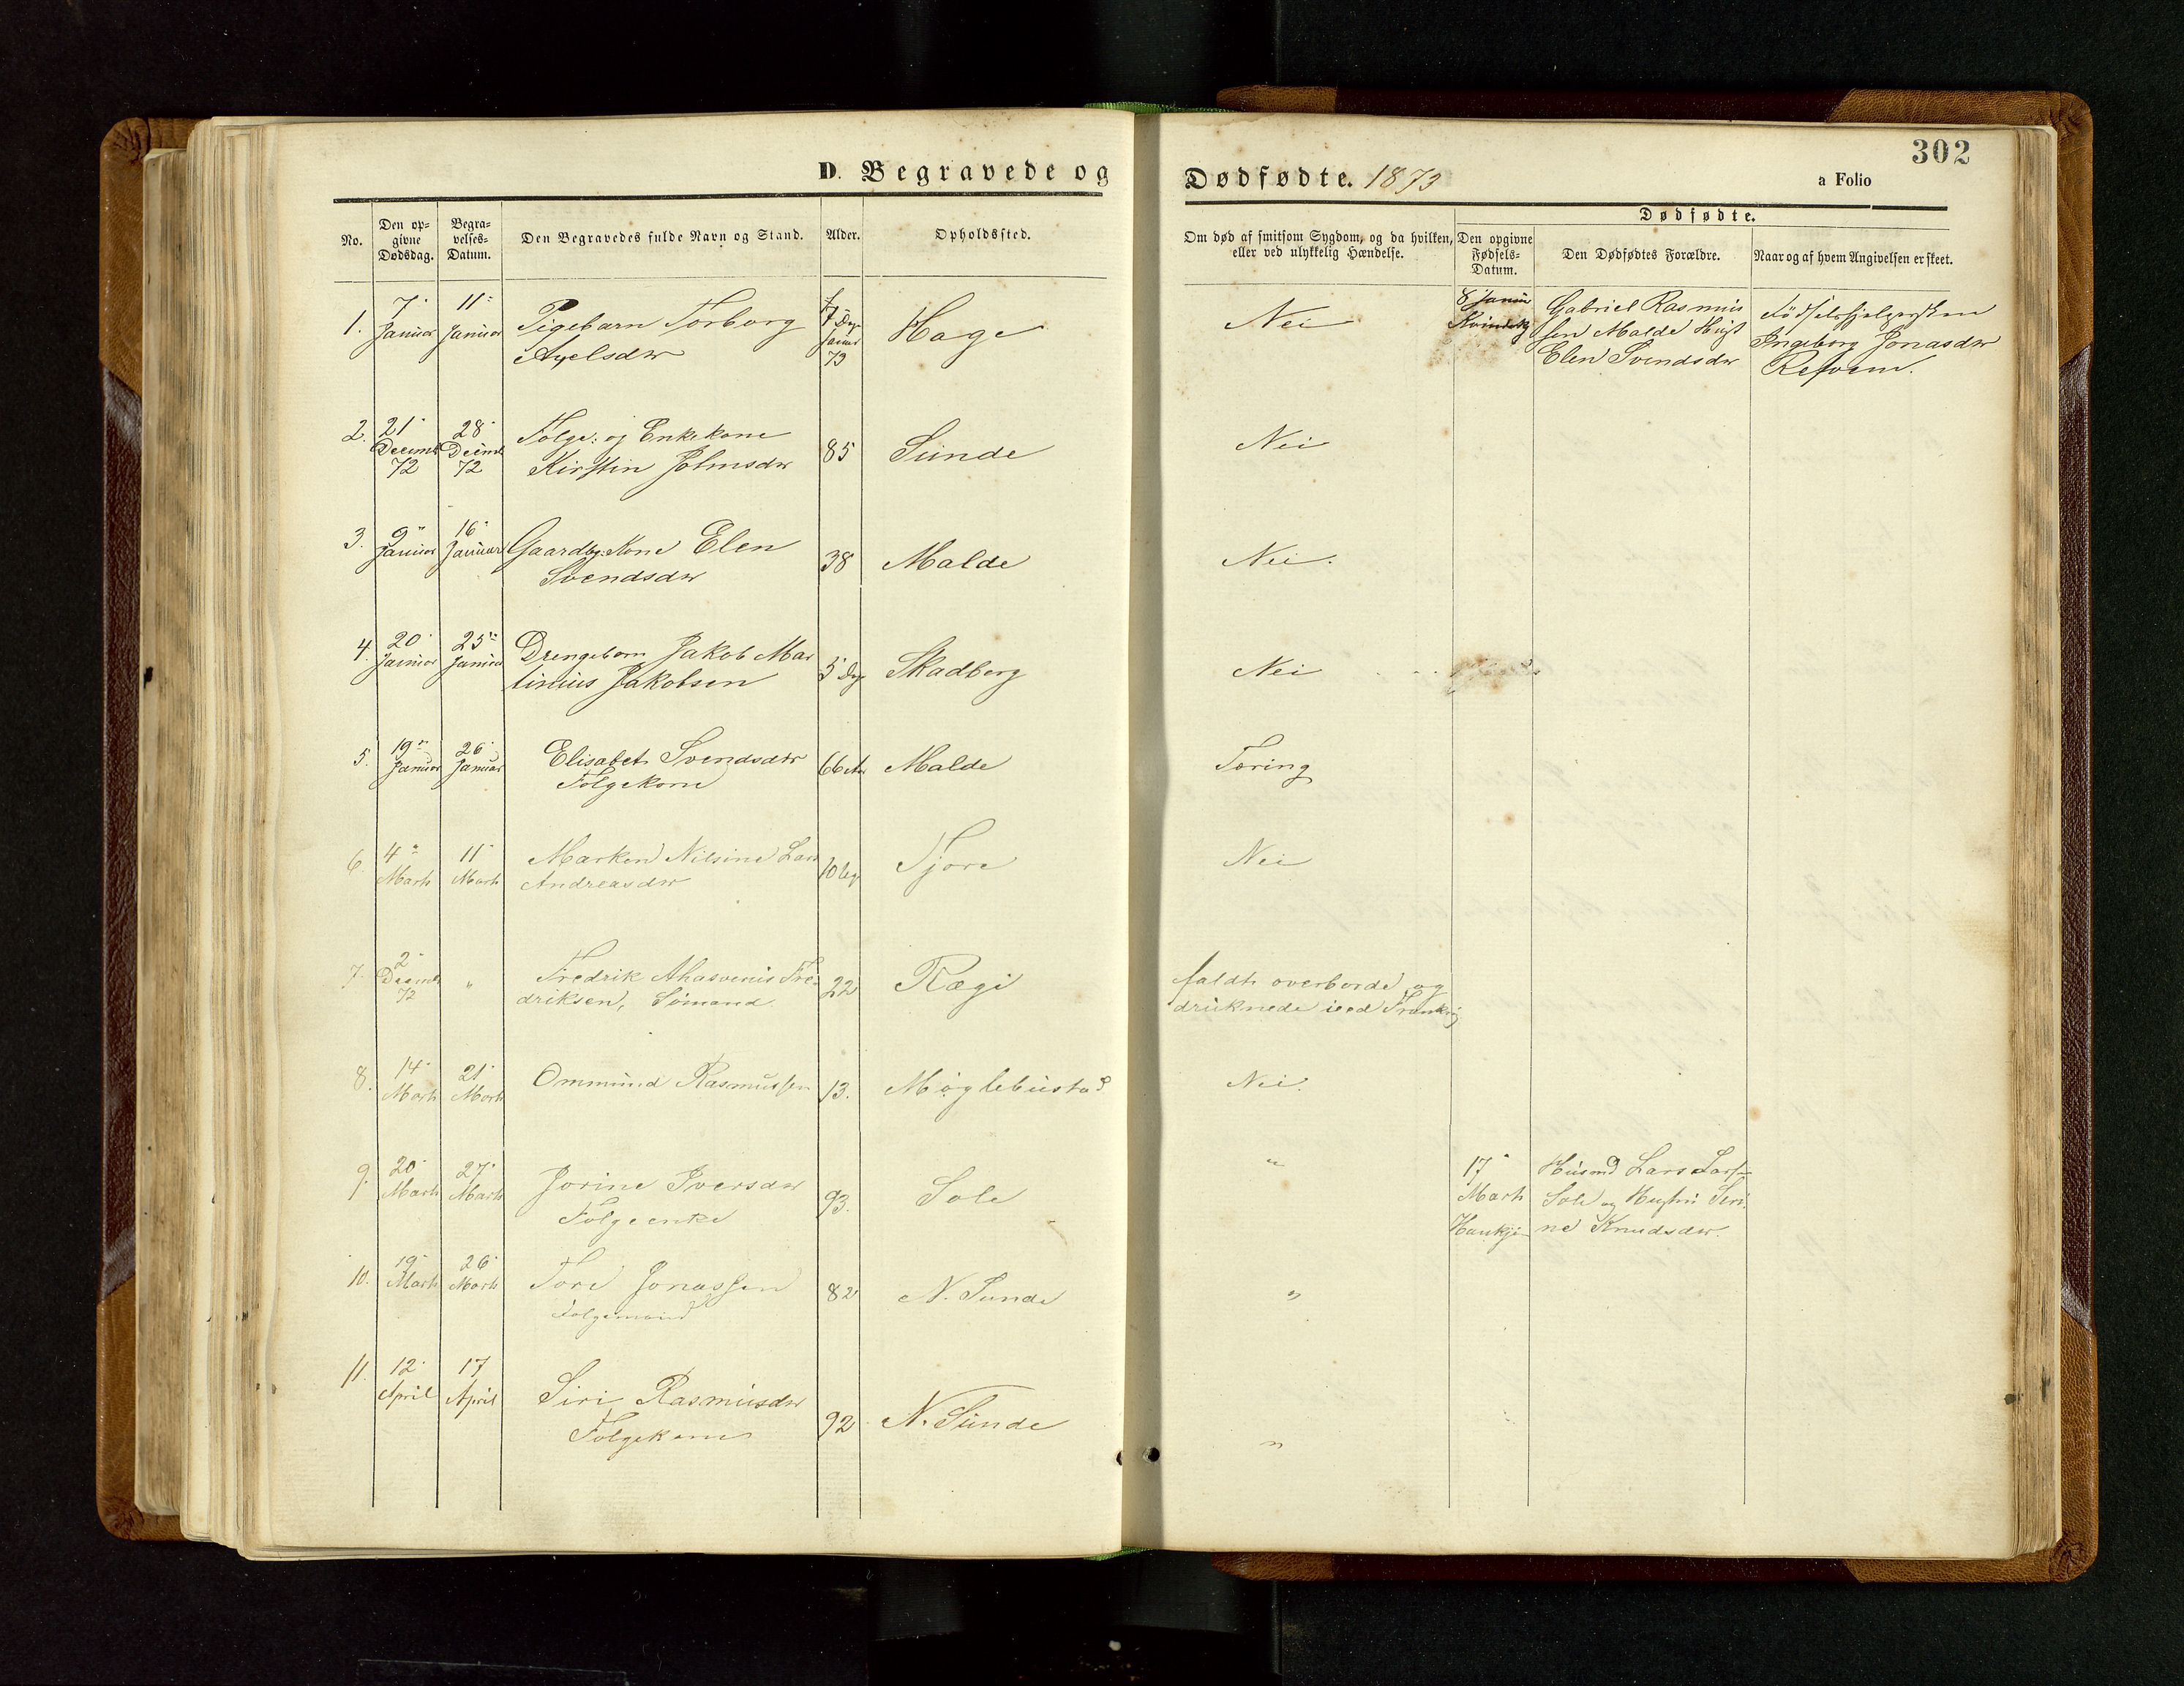 302
D. Begravede og Dødfødte. 1873
a Folio
No.
Den op-
givne
Dødsdag.
Begra-
velses-
Datum.
Den Begravedes fulde Navn og Stand.
Alder.
Opholdssted.
Om død af smitsom Sygdom, og da hvilken,
eller ved ulykkelig Hændelse.
Dødfødte.
Den opgivne
Fødsels-
Datum.
Den Dødfødtes Forældre.
Naar og af hvem Angivelsen er skeet.
1. 7 Januar 11 Januar Pigebarn Torborg
Axelsdtr
Januar
73
Hage
Nei
8 Januar
Gabriel Rasmus
sen Malde Hust
Elen Svendsdtr
Fødselshjelpersken
Ingeborg Jonasdtr
Refvem.
2. 21 Decemb 72 28 Decemb 72 Følge: og Enkekone
Kirstin Johnsdtr
85 Sunde
Nei
3. 9 Januar 16 Januar Gaardbr: Kone Elen
Svendsdtr
38 Malde
Nei.
4. 20 Januar 25 Januar Drengebarn Jakob Mar
tinius Jakobsen
5 Dg Skadberg
Nei
5. 19 Januar 26 Januar Elisabet Svendsdtr
Følgekone
66 Malde
Tæring
6. 4 Marts 11 Marts Marken Nilsine Lars
Andreasdtr
10 Tjore
Nei
7. 2 Decemb 72 " Fredrik Ahasverus Fre-
driksen, Sømand
22 Rægi
faldt overborde og
druknede ved Frankrig
8. 14 Marts 21 Marts Ommund Rasmussen 13. Møglebustad
Nei.
9. 20 Marts 27 Marts Jorine Iversdtr
Følgeenke
93. Sole
"
17
Marts
Hankjøn
Husmd Lars Larss
Sole og Hustru Seri
ne Knudsdtr.
10. 19 Marts 26 Marts Tore Jonassen
Følgemand
82 N. Sunde
"
11. 12 April 17 April Siri Rasmusdtr
Følgekone
92 N. Sunde
"